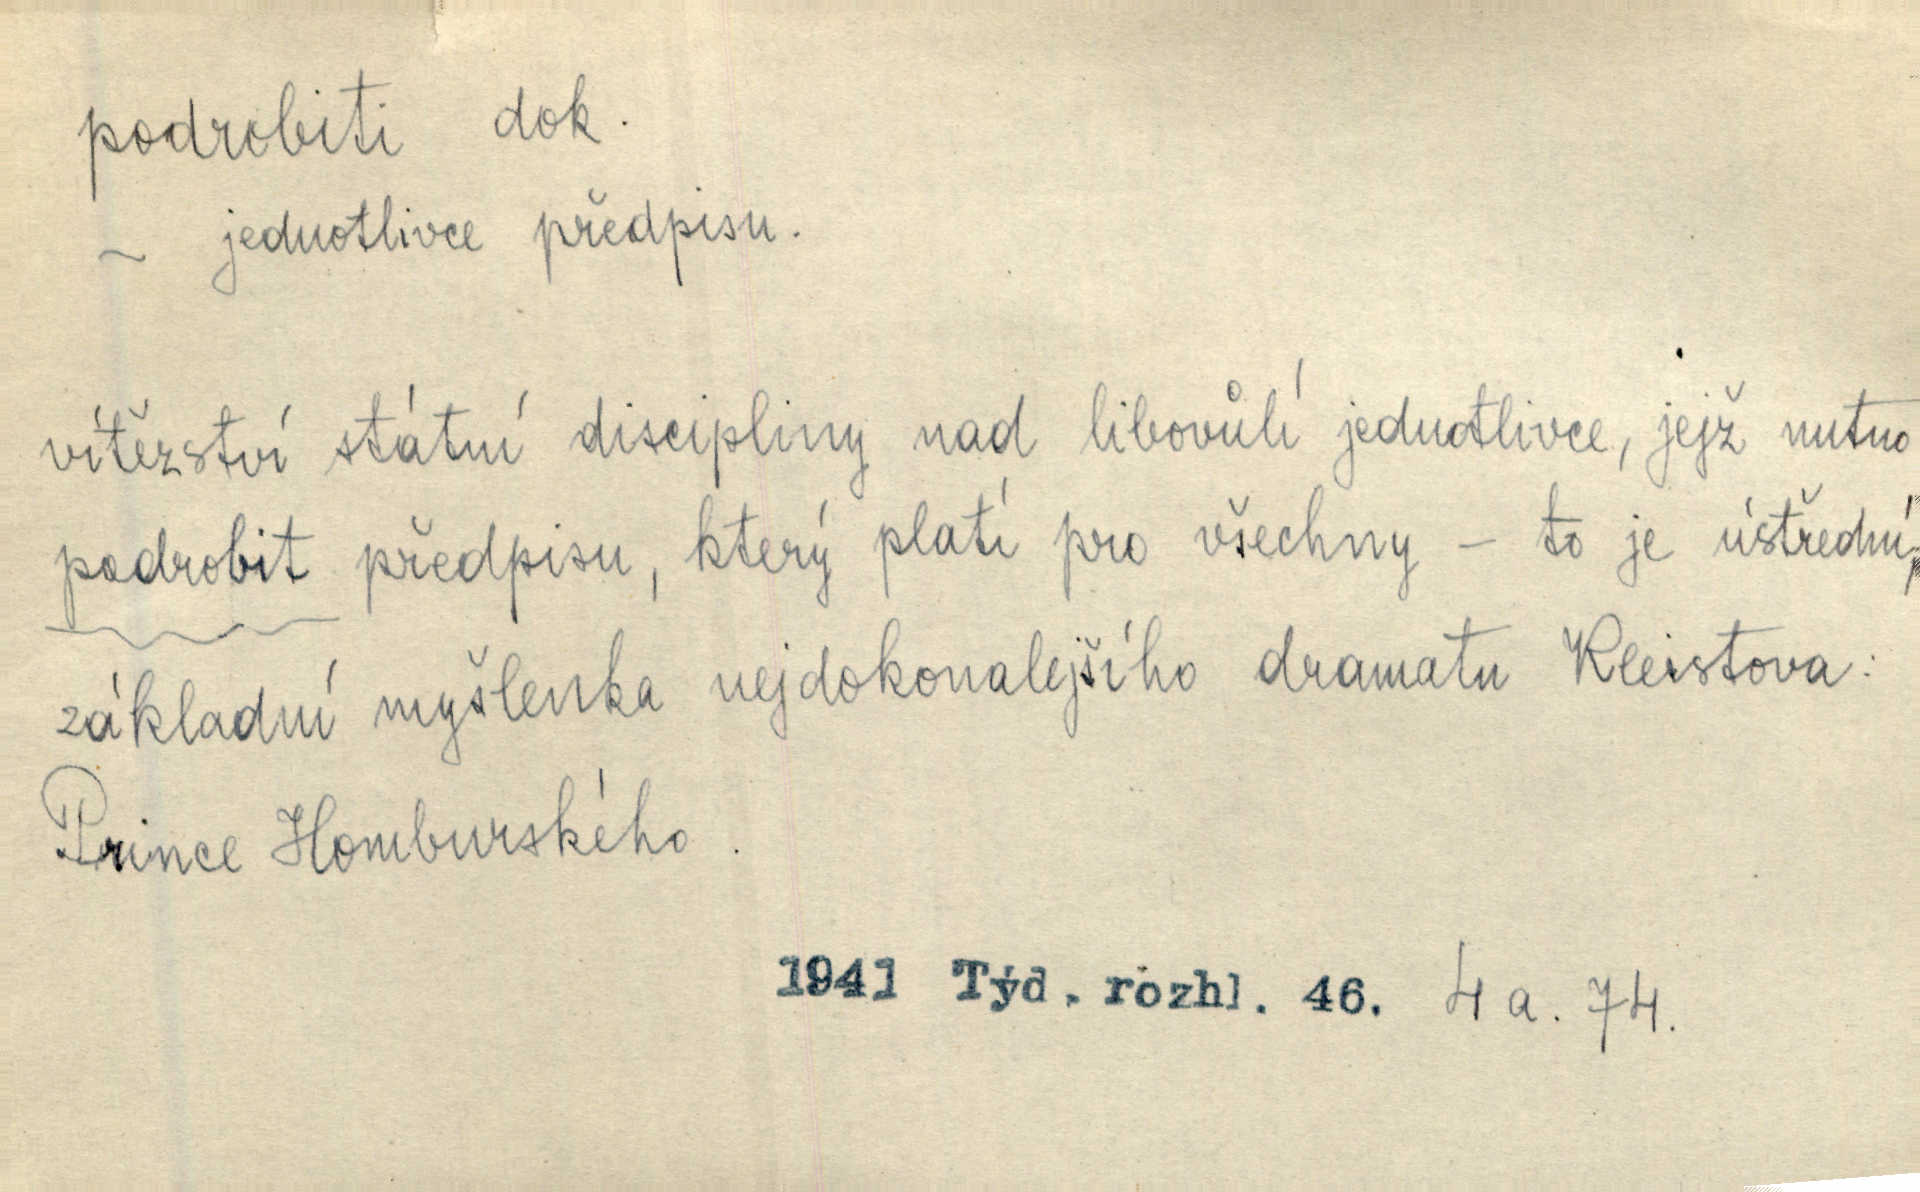 podrobiti dok.
~ jednotlivce předpisu.
vítězství státní discipliny nad libovůlí jednotlivce, jejž nutno
podrobit předpisu, který platí pro všechny – to je ústřední,
základní myšlenka nejdokonalejšího dramatu Kleistova:
Prince Homburského.
1941 Týd. rozhl. 46. 4 a. 74.